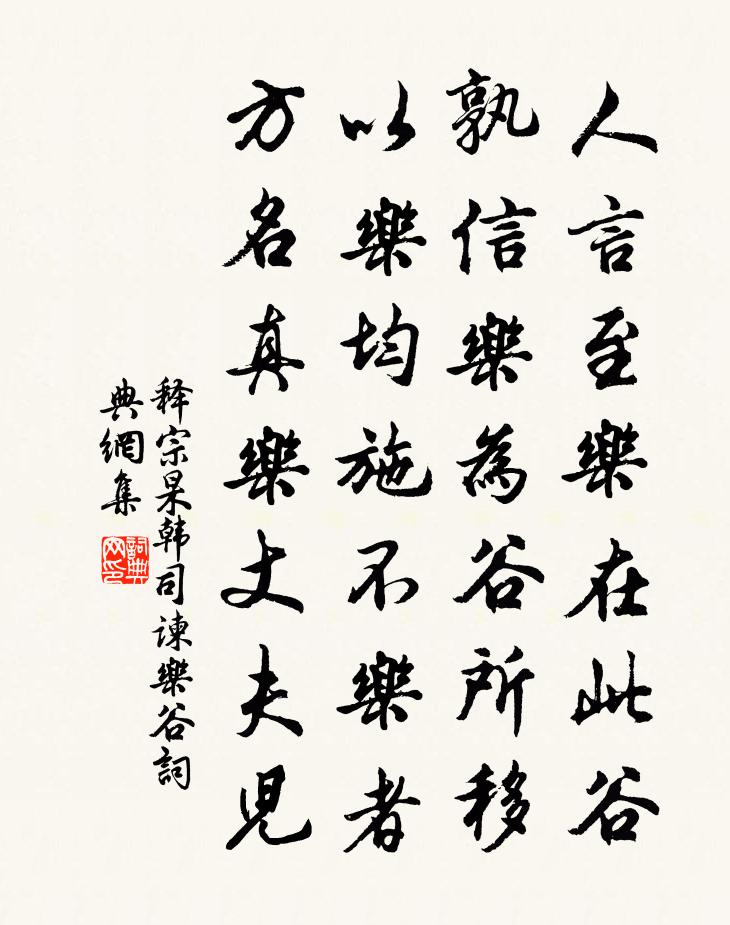 人言至樂在此谷
孰信樂為谷所移
以樂均施不樂者
方名真樂丈夫児
釋宗杲韩司諫樂谷詞
典網集
詞典
网印